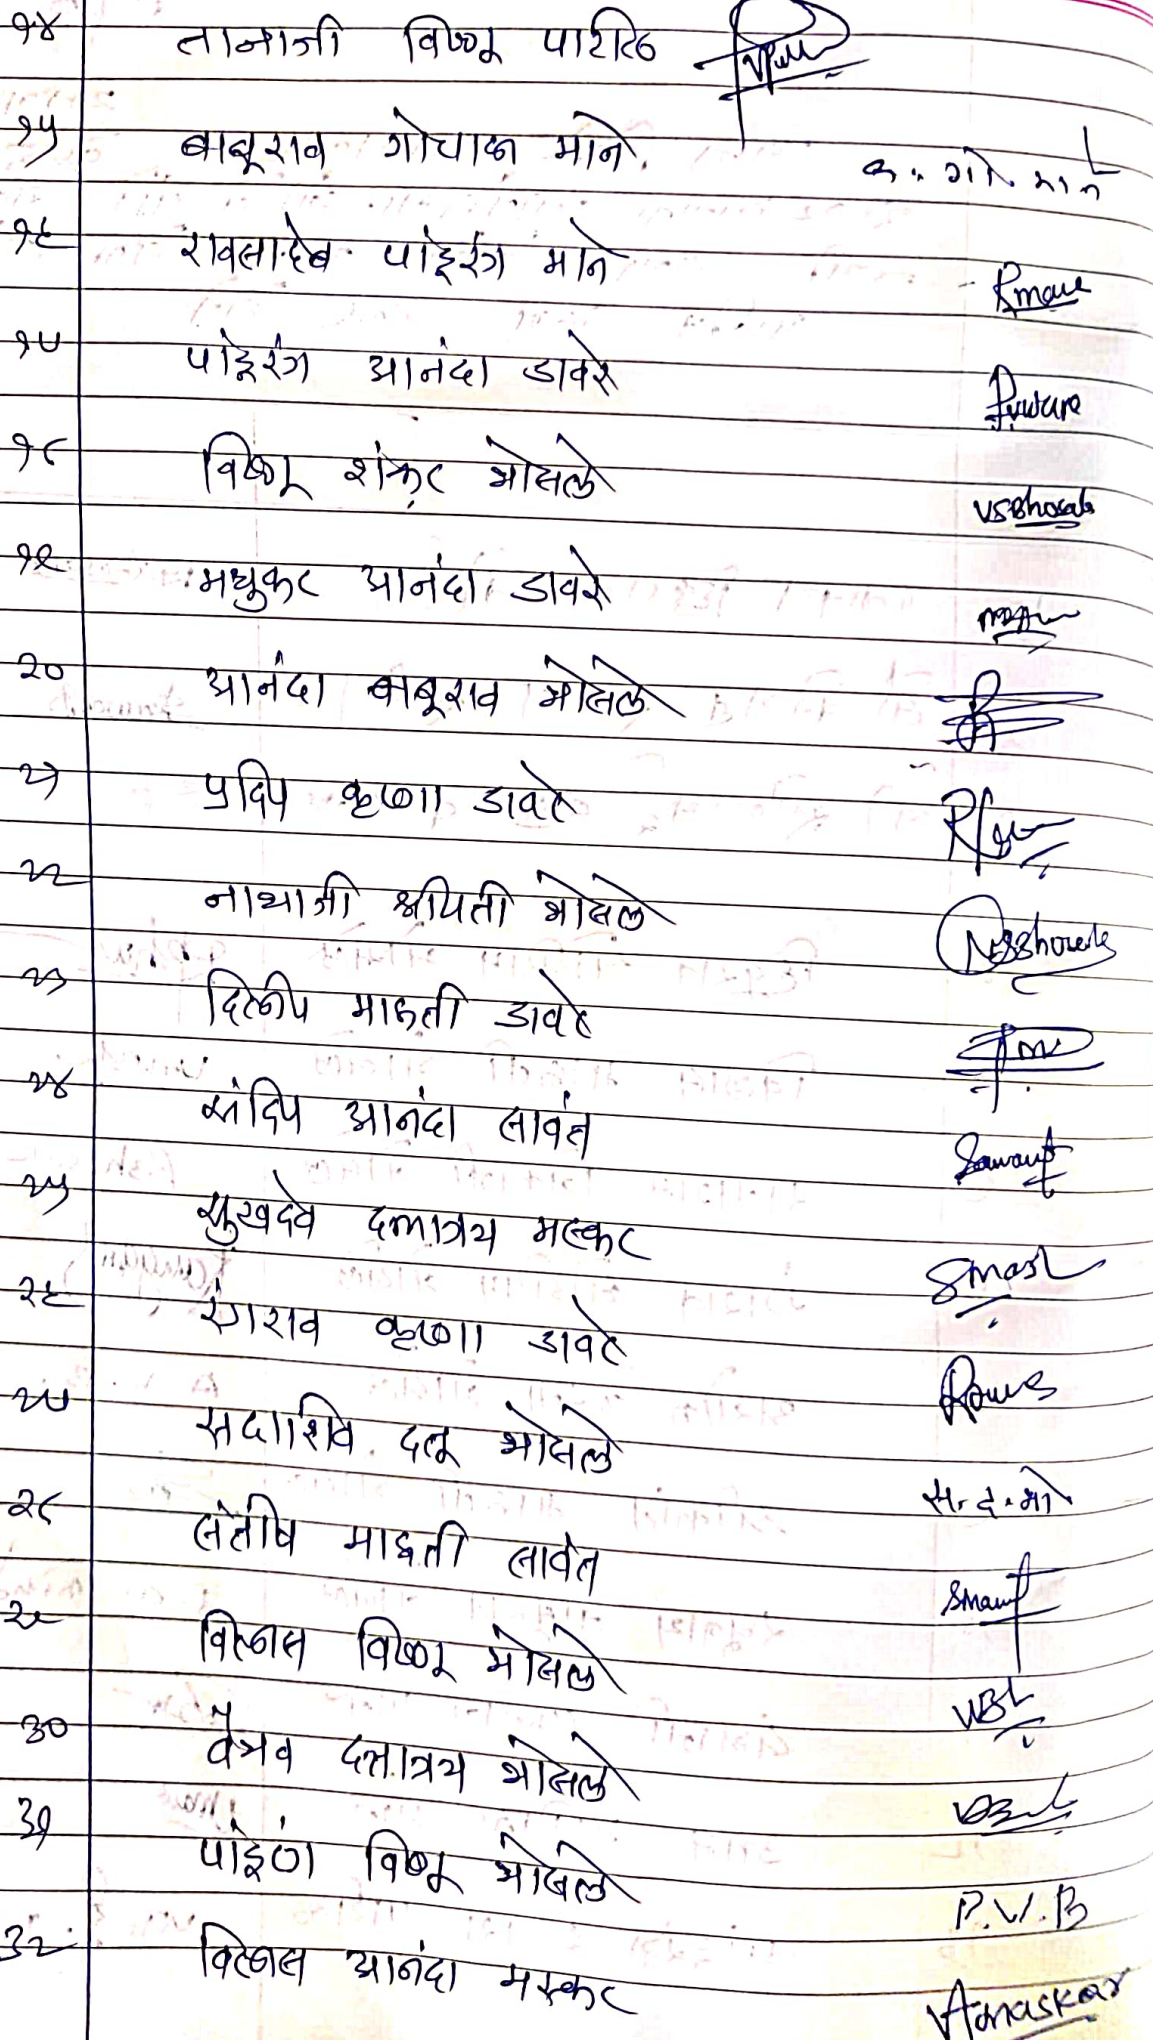 १४ तानाजी विष्णू पारीट
१५ बाबूराव गोपाळ माने ब. गो. माने
१६ रावसाहेब पांडूरंग माने Rmane
१७ पांडूरंग आनंदा डावरे
१८ विष्णू शंकर भोसले VSBhosale
१९ मधुकर आनंदा डावरे
२० आनंदा बाबूराव भोसले
२१ प्रदिप कृष्णा डावरे
२२ नाथाजी श्रीपती भोसले
२३ दिलीप मारुती डावरे
२४ संदिप आनंदा सावंत Sawant
२५ सुखदेव दत्तात्रय मस्कर
२६ रंगराव कृष्णा डावरे
२७ सदाशिव दत्तू भोसले स. द. भो
२८ संतोष मारुती सावंत
२९ विलास विष्णू भोसले
३० वैभव दत्तात्रय भोसले
३१ पांडूरंग विष्णू भोसले P.V.B
३२ विलास आनंदा मस्कर VAmaskar